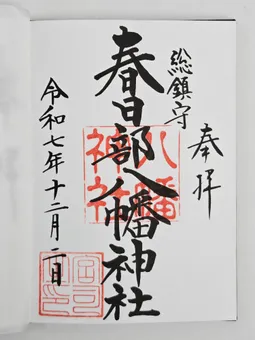 奉拝
総鎮守
春日部八幡神社
八幡神社
令和七年十二月二日
宮司之印